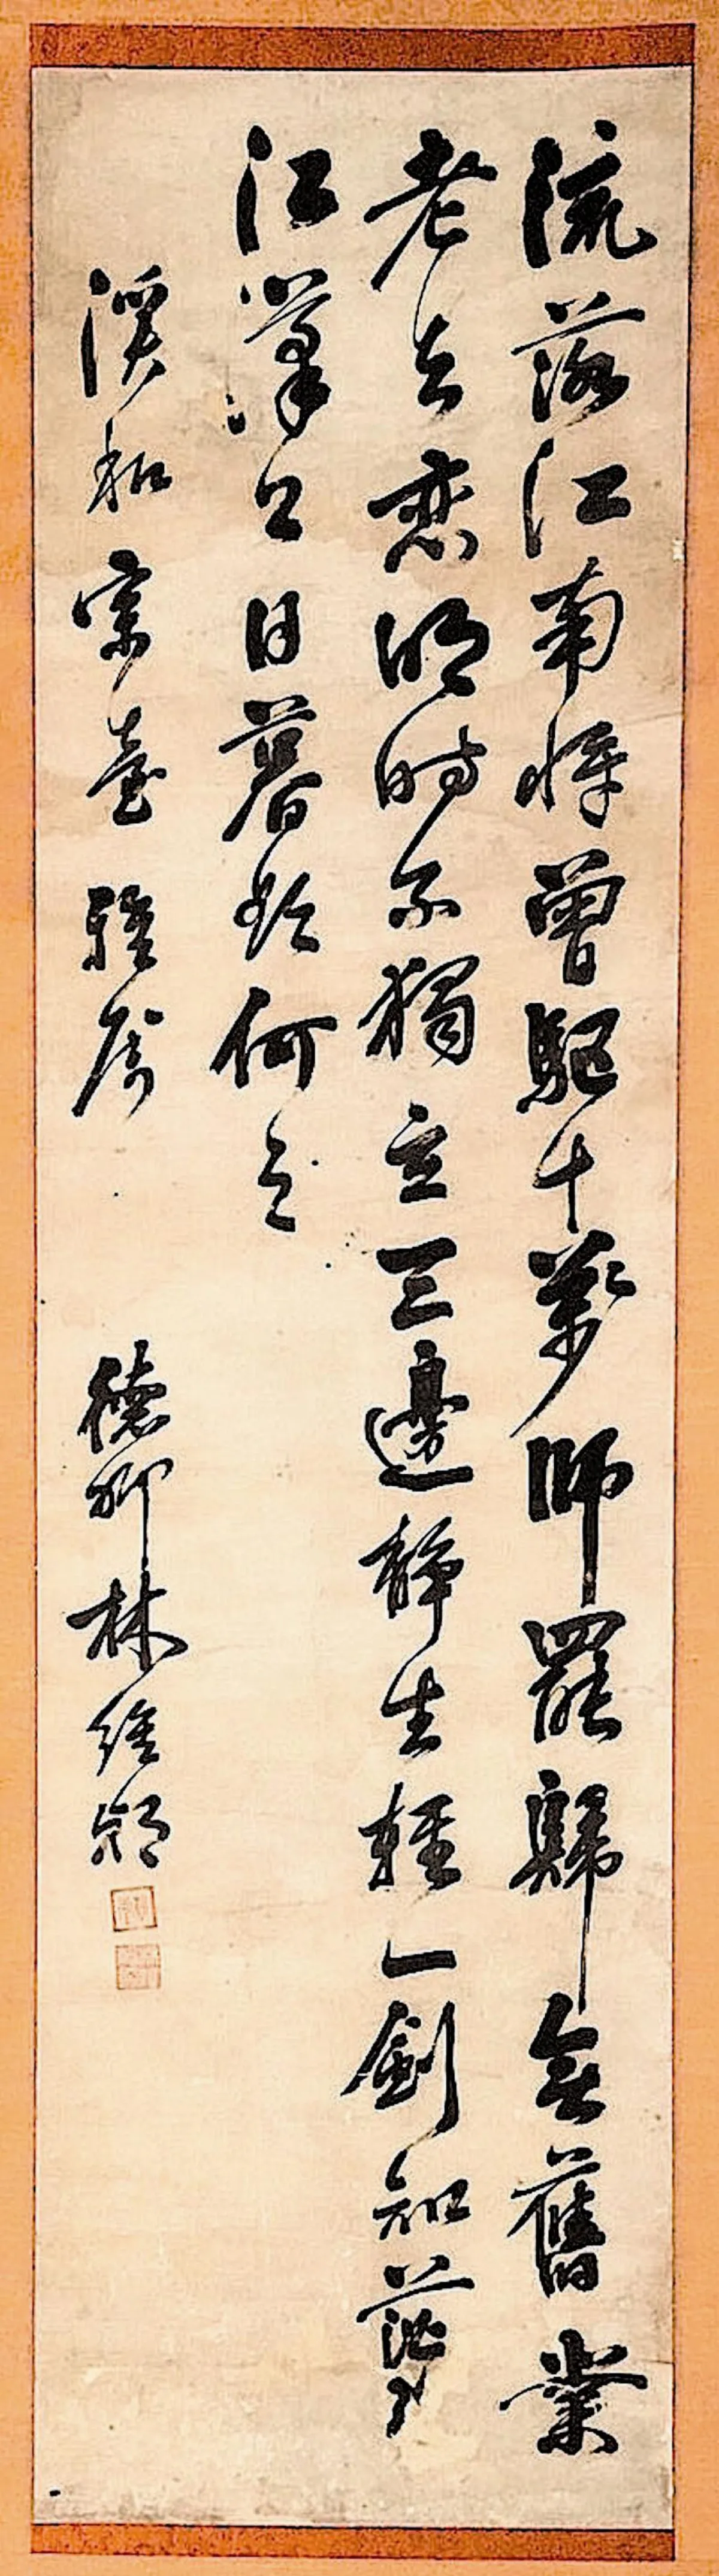 流落江南將曾駈十萬師罷歸無舊業
老去戀明時不獨立三邊靜生輕一劍知茫々
江漢上日暮欲何之
溪和宗臺雅屬 德卿林維朝